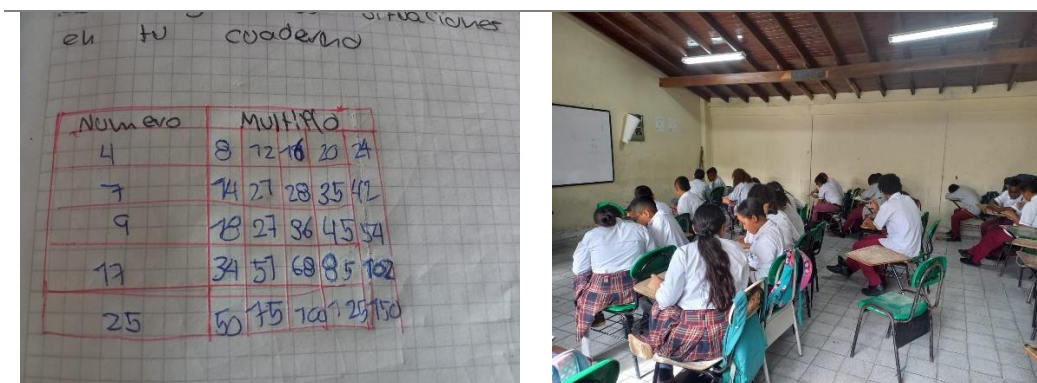 situaciones
en tu cuaderno
Numero Multiplo
4 8 12 16 20 24
7 14 21 28 35 42
9 18 27 36 45 54
17 34 51 68 85 102
25 50 75 100 125 150